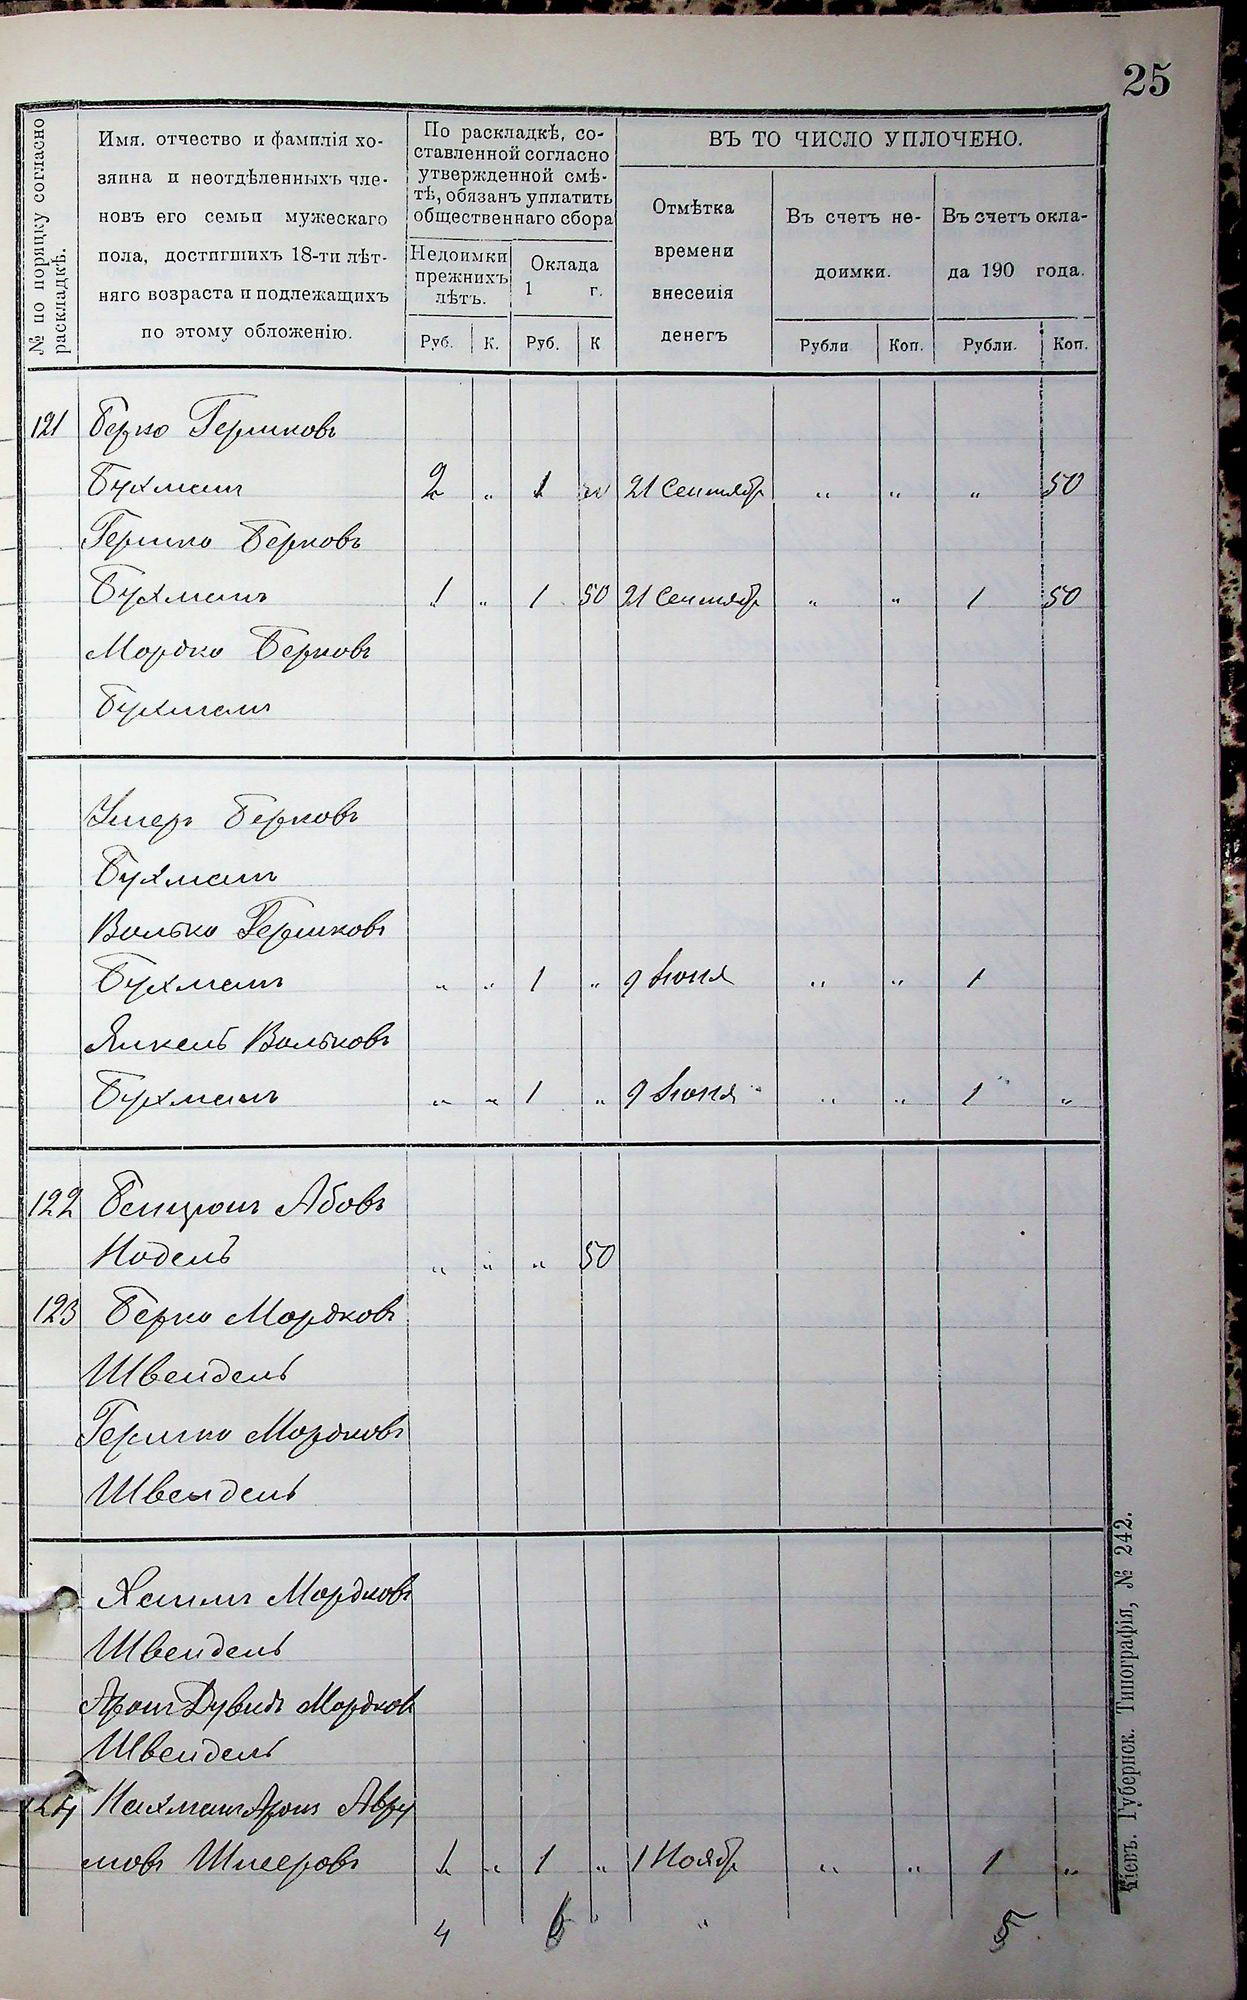 25
№ по порядку согласно раскладкѣ.
Имя. отчество и фамилія хо-
зяина и неотдѣленныхъ чле-
новъ его семьи мужескаго
пола, достигшихъ 18-ти лѣт-
няго возраста и подлежащихъ
по этому обложенію.
По раскладкѣ, со-
ставленной согласно
утвержденной смѣ-
тѣ, обязанъ уплатить
общественнаго сбора
Недоимки
прежнихъ
лѣтъ.
Оклада
1 г.
Руб. К. Руб. К
ВЪ ТО ЧИСЛО УПЛОЧЕНО.
Отмѣтка
времени
внесенія
денегъ
Въ счетъ не-
доимки.
Въ счетъ окла-
да 190 года.
Рубли Коп. Рубли. Коп.
121 Берко Гершковъ
Бухманъ 2 „ 1 21 Сентябр „ „ „ 50
Гершко Берковъ
Бухманъ 1 „ 1 50 21 Сентябр „ „ 1 50
Мордко Берковъ
Бухманъ
Умеръ Берковъ
Бухманъ
Волько Гершковъ
Бухманъ „ „ 1 „ 9 Іюня „ „ 1
Янкель Вольковъ
Бухманъ „ „ 1 „ 9 Іюня „ „ 1 „
122 Бенціонъ Абовъ
Нодель „ „ „ 50
123 Берко Мордковъ
Швендель
Гершко Мордковъ
Швендель
Хаимъ Мордковъ
Швендель
Аронъ Дувидъ Мордков
Швендель
124 Нахманъ Аронъ Авру
мовъ 1 „ 1 „ 1 Ноябр „ „ 1 „
4 6 „ „ 5
Кіевъ. Губернск. Типографія, № 242.